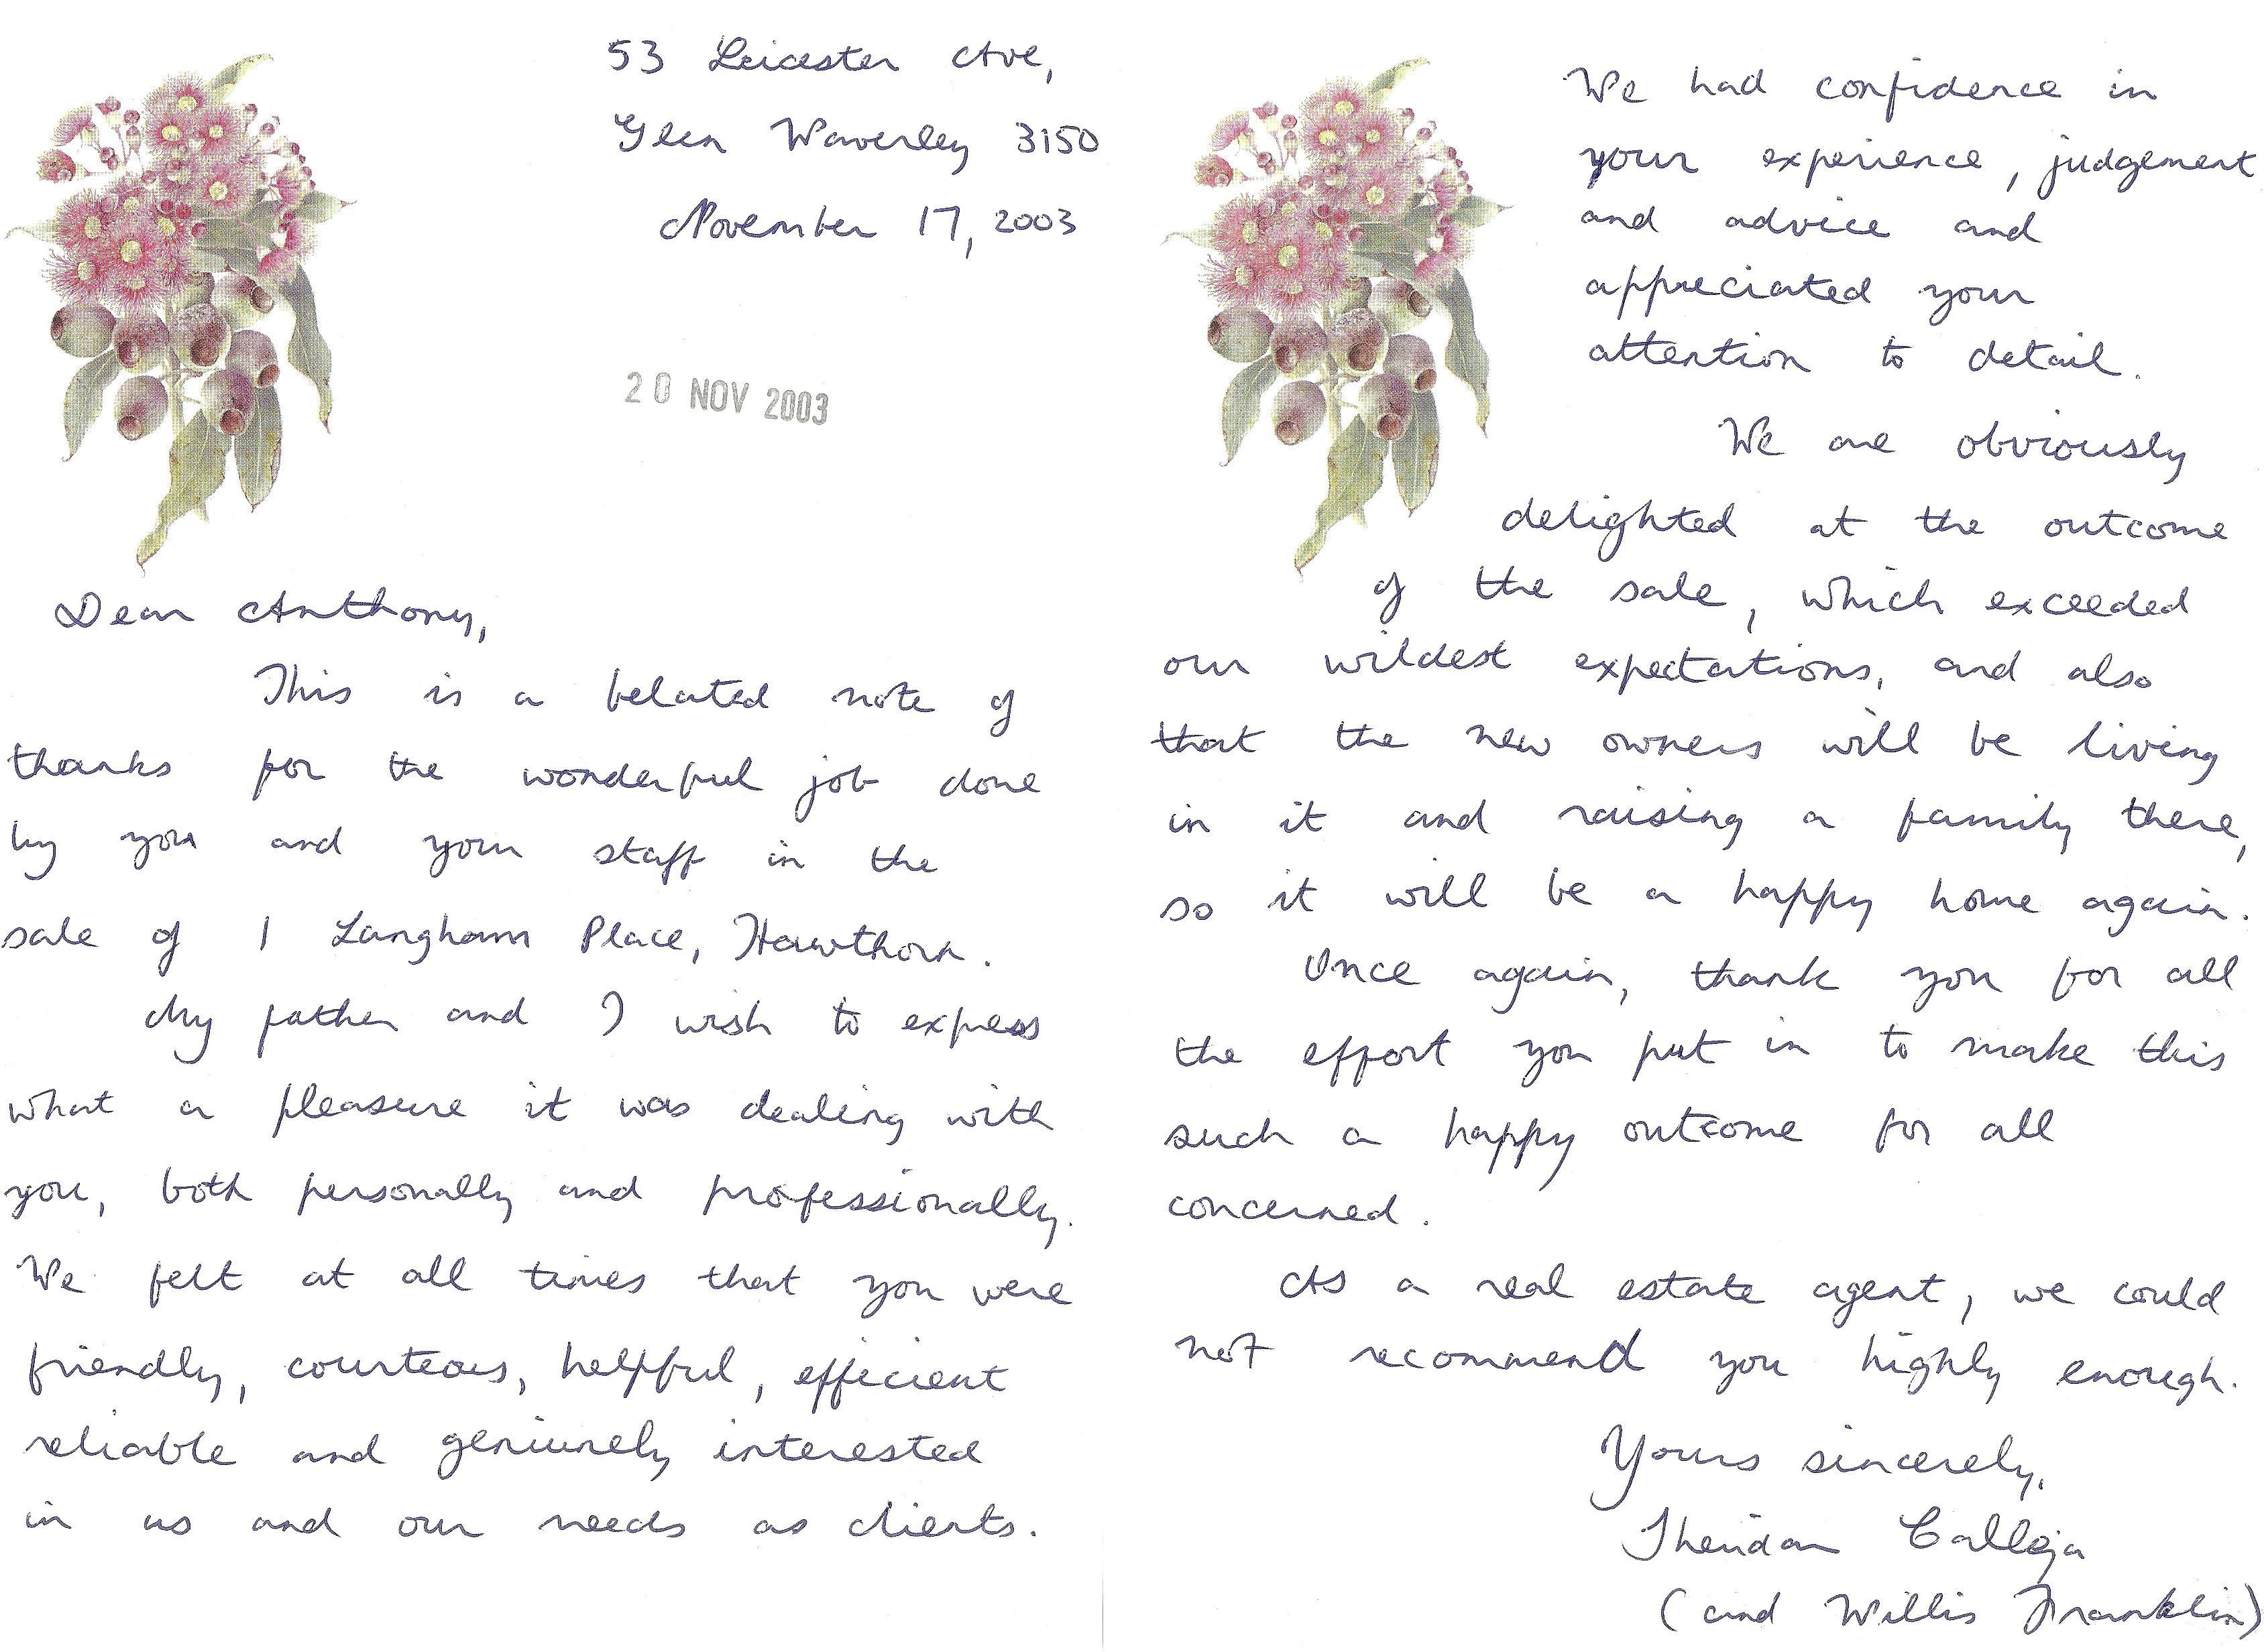 53 Leicester Ave,
Glen Waverley 3150
November 17, 2003
20 NOV 2003
Dear Anthony,
This is a belated note of
thanks for the wonderful job done
by you and your staff in the
sale of 1 Langham Place, Hawthorn.
My father and I wish to express
what a pleasure it was dealing with
you, both personally and professionally.
We felt at all times that you were
friendly, courteous, helpful, efficient
reliable and geniunely interested
in us and our needs as clients.
We had confidence in
your experience, judgement
and advice and
appreciated your
attention to detail.
We are obviously
delighted at the outcome
of the sale, which exceeded
our wildest expectations, and also
that the new owners will be living
in it and raising a family there,
so it will be a happy home again.
Once again, thank you for all
the effort you put in to make this
such a happy outcome for all
concerned.
As a real estate agent, we could
not recommend you highly enough.
Yours sincerely,
Sheridan Calleja
(and Willis Franklin)